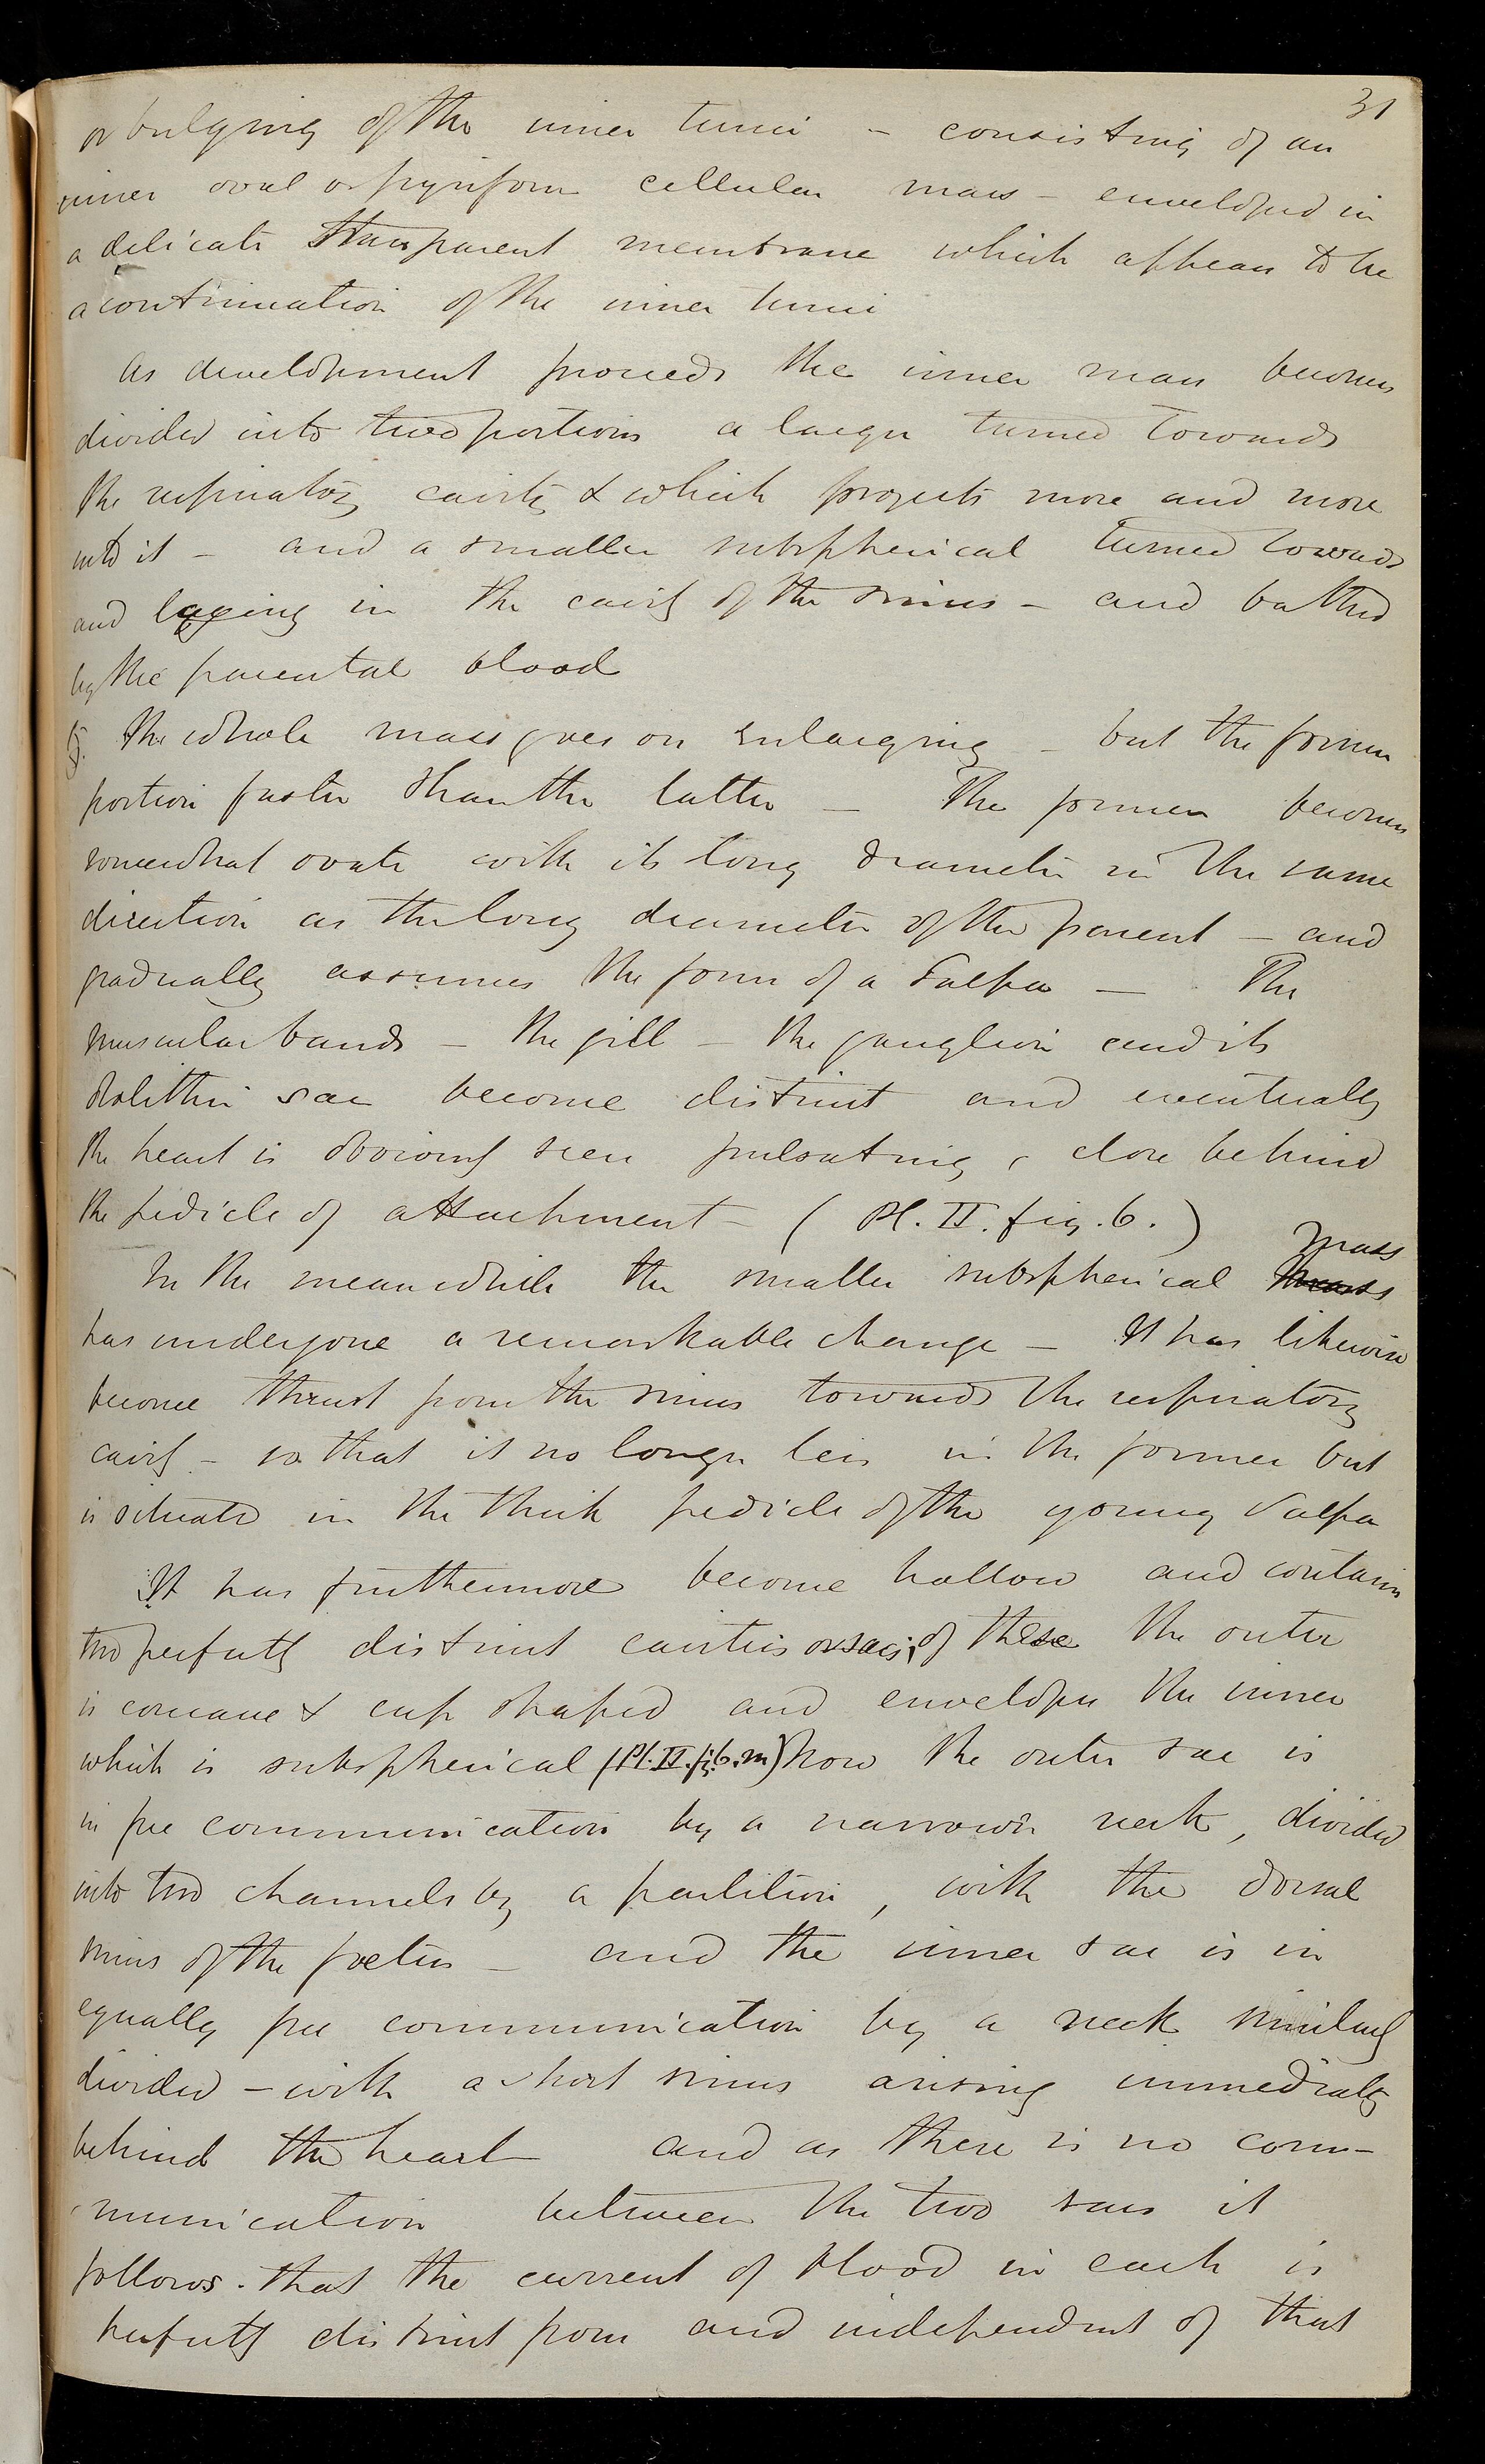 31
or bulging of the inner tunic – consisting of an
inner oval or pyriform cellular mass – enveloped in
a delicate transparent membrane which appears to be
a continuation of the inner tunic
As development proceeds the inner mass becomes
divided into two portions a larger turned towards
the respiratory cavity & which projects more and more
into it – and a smaller subspherical turned towards
and lying in the cavity of the sinus – and bathed
by the parental blood
The whole mass goes on enlarging – but the former
portion faster than the latter – The former becomes
somewhat ovate with its long diameter in the same
direction as the long diameter of the parent – and
gradually assumes the form of a Salpa – The
muscular bands – the gill – the ganglion and its
otolithic sac become distinct and eventually
the heart is obviously seen pulsating, close behind
the pedicle of attachment – (Pl. II. fig. 6.)
In the meanwhile the smaller subspherical mass
has undergone a remarkable change – It has likewise
become thrust from the sinus towards the respiratory
cavity – so that it no longer lies in the former but
is situate in the thick pedicle of the young Salpa
It has furthermore become hollow and contains
two perfectly distinct cavities or sacs; of these the outer
is concave & cup shaped and envelopes the inner
which is subspherical (Pl. II. fig. 6. m) Now the outer sac is
in free communication by a narrower neck, divided
into two channels by a partition, with the dorsal
sinus of the foetus – and the inner sac is in
equally free communication by a neck similarly
divided – with a short sinus arising immediately
behind the heart and as there is no com–
munication between the two sacs it
follows that the current of blood in each is
perfectly distinct from and independent of that